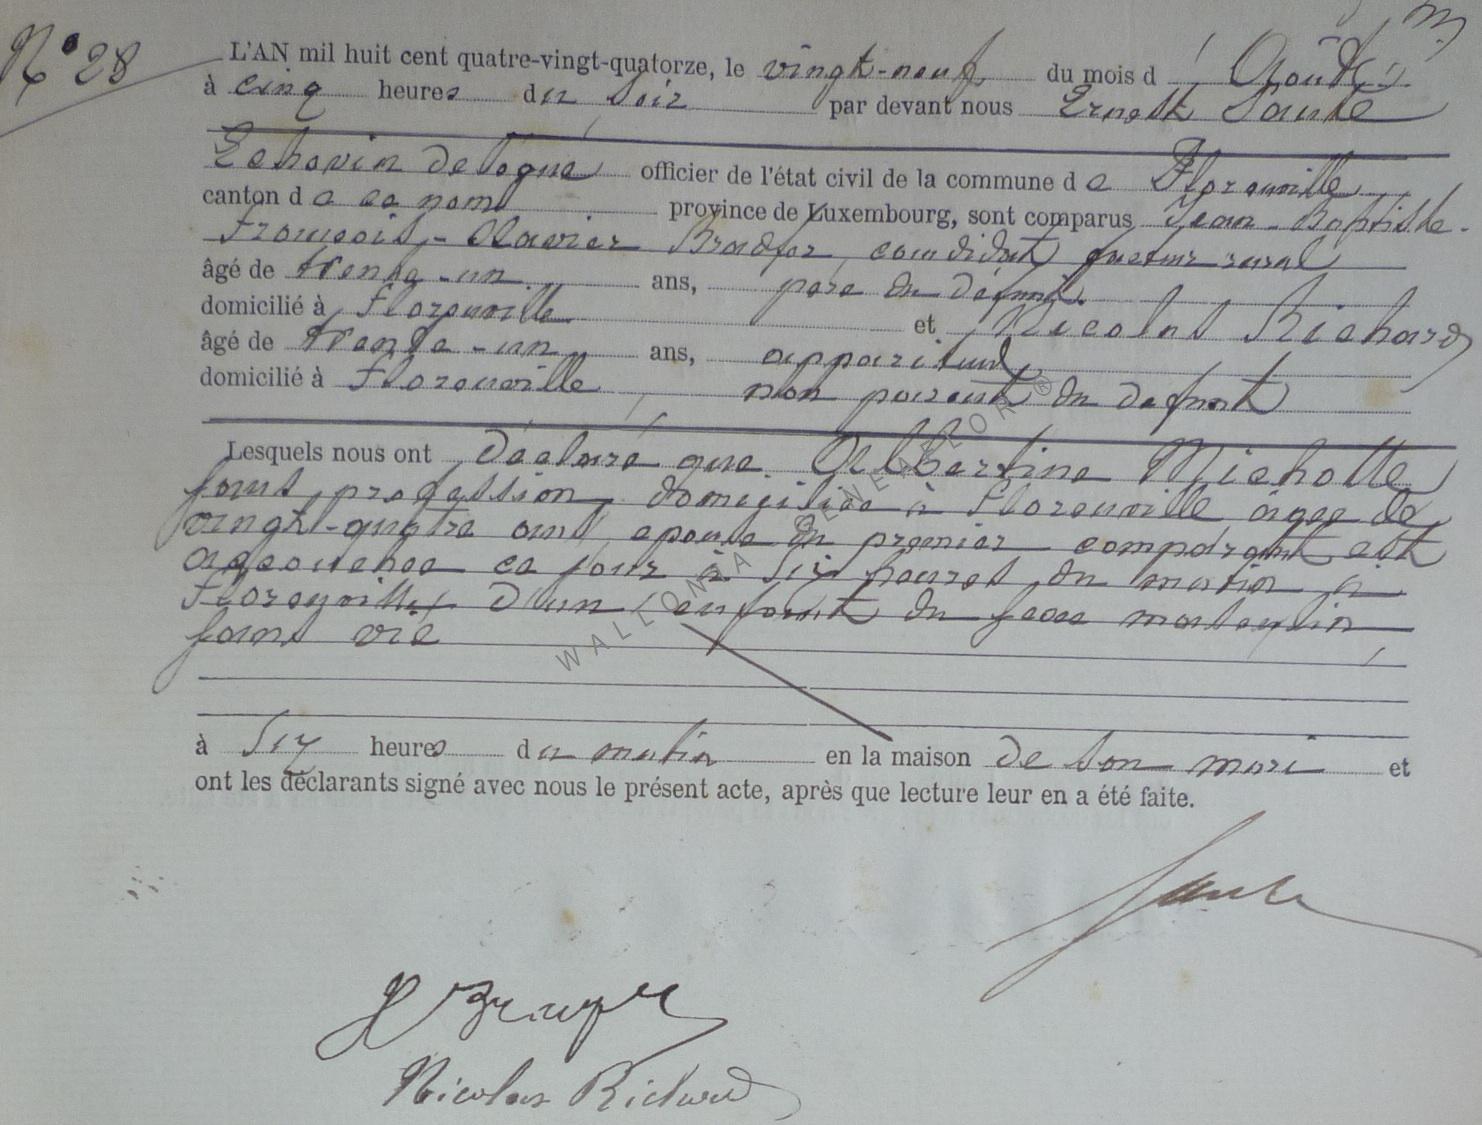 N° 28
L'AN mil huit cent quatre-vingt-quatorze, le vingt-neuf du mois d'Août
à cinq heures du soir par devant nous Ernest Sauté
Echevin délégué officier de l'état civil de la commune de Florenville
canton de ce nom province de Luxembourg, sont comparus Jean-Baptiste-
François-Xavier candidat facteur rural
âgé de trente-un ans, père du défunt
domicilié à Florenville et Nicolas Richard
âgé de trente-un ans, appariteur
domicilié à Florenville, non parent du défunt
Lesquels nous ont déclaré que Albertine Michotte
sans profession, domiciliée à Florenville âgée de
vingt-quatre ans, épouse du premier comparant est
accouchée ce jour à six heures du matin à
Florenville d'un enfant du sexe masculin
sans vie
à six heures du matin en la maison de son mari et
ont les déclarants signé avec nous le présent acte, après que lecture leur en a été faite.
Sauté
Nicolas Richard
WALLONIA GENEAFLOR ®